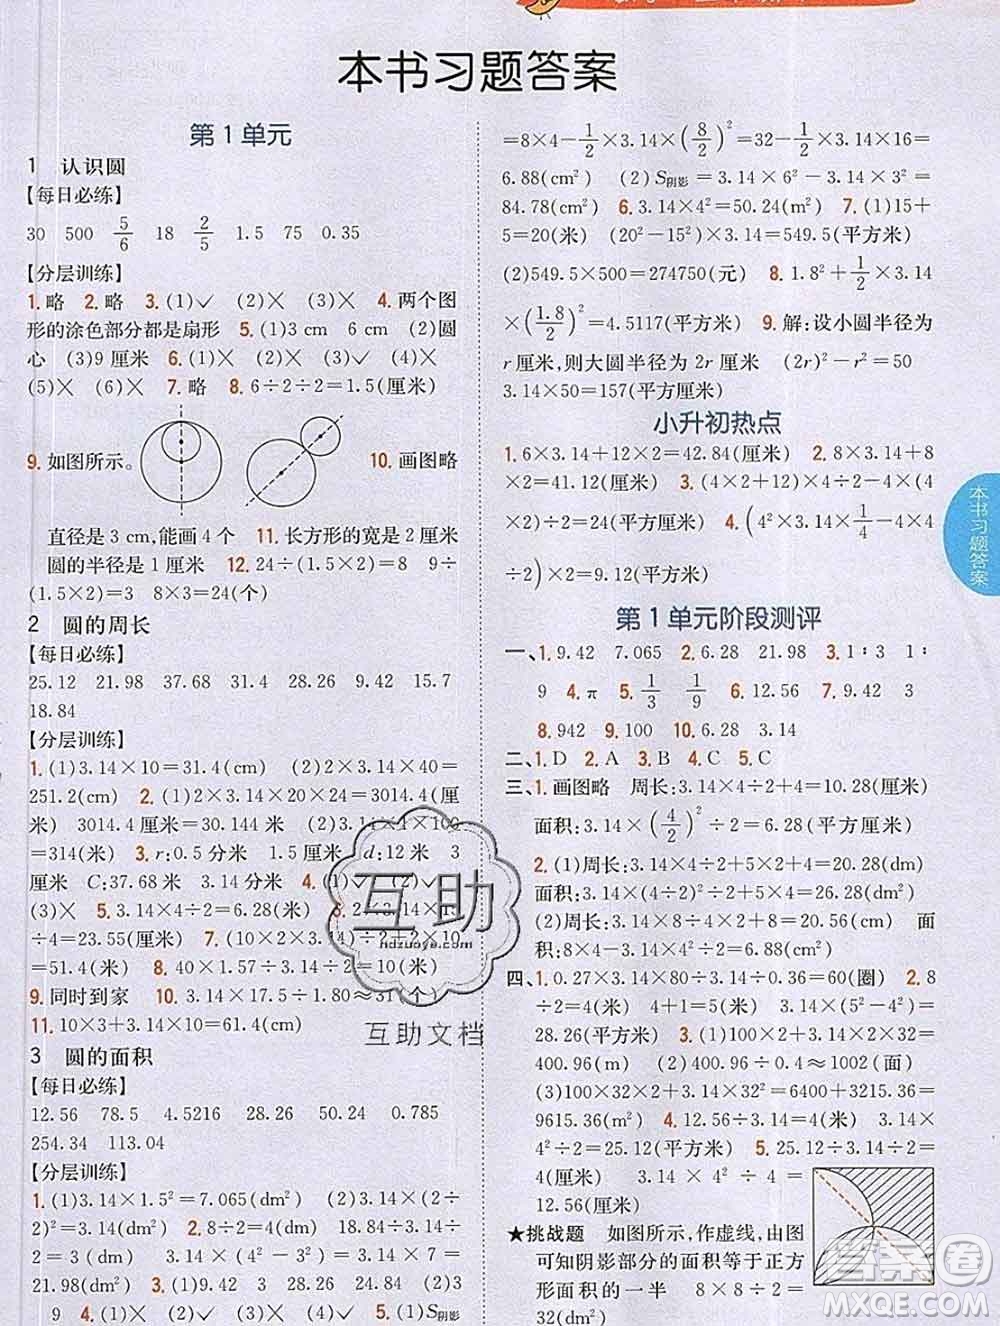 本书习题答案
第1单元
1 认识圆
【每日必练】
30 500 5/6 18 2/5 1.5 75 0.35
【分层训练】
1.略 2.略 3.(1)✓ (2)× (3)× 4.两个图
形的涂色部分都是扇形 5.(1)3 cm 6 cm (2)圆
心 (3)9 厘米 6.(1)× (2)× (3)× (4)×
(5)× (6)× 7.略 8.6÷2÷2=1.5(厘米)
9.如图所示。 10.画图略
直径是 3 cm,能画 4 个 11.长方形的宽是 2 厘米
圆的半径是 1 厘米 12.24÷(1.5×2)=8 9÷
(1.5×2)=3 8×3=24(个)
2 圆的周长
【每日必练】
25.12 21.98 37.68 31.4 28.26 9.42 15.7
18.84
【分层训练】
1.(1)3.14×10=31.4(cm) (2)2×3.14×40=
251.2(cm) 2.(1)2×3.14×20×24=3014.4(厘
米) 3014.4 厘米=30.144 米 (2)3.14×1×100
=314(米) 3.r:0.5 分米 1.5 厘米 d:12 米 3
厘米 C:37.68 米 3.14 分米 4.(1)✓ (2)×
(3)× 5.3.14×4÷2=6.28(米)
÷4=5(米) 7.(10×2×3.14)÷2
8.40×3.14×2 =10(米)
9.同时到家 10.3.14×10×10=
11.10×3+3.14×10=61.4(cm)
3 圆的面积
【每日必练】
12.56 78.5 4.5216 28.26 50.24 0.785
254.34 113.04
【分层训练】
1.(1)3.14×1.5²=7.065(dm²) (2)3.14×(2÷
2)²=3.14(dm²) 2.8÷2=4(cm) 18.84÷3.14÷
2=3(dm) 3.14×4²=50.24(cm²)
21.98(cm²) 28.26(dm²) 3.(1)4 (2)3
9 4.(1)× (2)× (3)× (4)✓ 5.(1)S阴影
=8×4−1/2×3.14×(8/2)²=32−1/2×3.14×16=
6.88(cm²) (2)S阴影=3.14×6²−3.14×3²=
84.78(cm²) 6.3.14×4²=50.24(m²) 7.(1)15+
5=20(米) (20²−15²)×3.14=549.5(平方米)
(2)549.5×500=274750(元) 8.1.8²+1/2×3.14
×(1.8/2)²=4.5117(平方米) 9.解:设小圆半径为
r厘米,则大圆半径为 2r 厘米 (2r)²−r²=50
3.14×50=157(平方厘米)
小升初热点
1.6×3.14+12×2=42.84(厘米) 2.8×3.14+
8×2=41.12(厘米) 3.(4×2+12)×4÷2−4×4
÷2×2=24(平方厘米) 4.(4²×3.14×1/4−4×4
÷2)×2=9.12(平方厘米)
第1单元阶段测评
一、1.9.42 7.065 2.6.28 21.98 3.1∶3 1∶
9 4.π 5.1/3 1/9 6.12.56 7.9.42 3
8.942 9.100 10.6.28
二、1.D 2.A 3.C 4.D 5.C
三、1.画图略 周长:3.14×4÷2+4=10.28(厘米)
面积:3.14×(4/2)²÷2=6.28(平方厘米)
2.(1)周长:3.14×4÷2+4×5=26.28(dm)
面积:4²×3.14÷2÷2+4²=28.56(dm²)
(2)周长:3.14×8÷4×2+8=20.56(cm) 面
积:8²×3.14÷4=50.24(cm²)
四、1.0.27×3.14×80÷3.14÷0.36=60(圈) 2.8
÷2=4(米) 4+1=5(米) 3.14×(5²−4²)=
28.26(平方米) 3.(1)100×2+3.14×2×32=
400.96(m) (2)400.96÷0.4≈1002(面)
(3)100×32×2+3.14×32²=6400+3215.36=
9615.36(m²) 4.12.56÷3.14=4(米) 3.14×
4²÷2=25.12(平方米) 5.25.12÷3.14÷2=
4(厘米) 3.14×4²÷4=
12.56(厘米)
★挑战题 如图所示,作虚线,由图
可知阴影部分的面积等于正方
形面积的一半 8×8÷2=
32(cm²)
本书习题答案
互助
hdzuoye.com
互助文档
答案圈
MXQE.COM